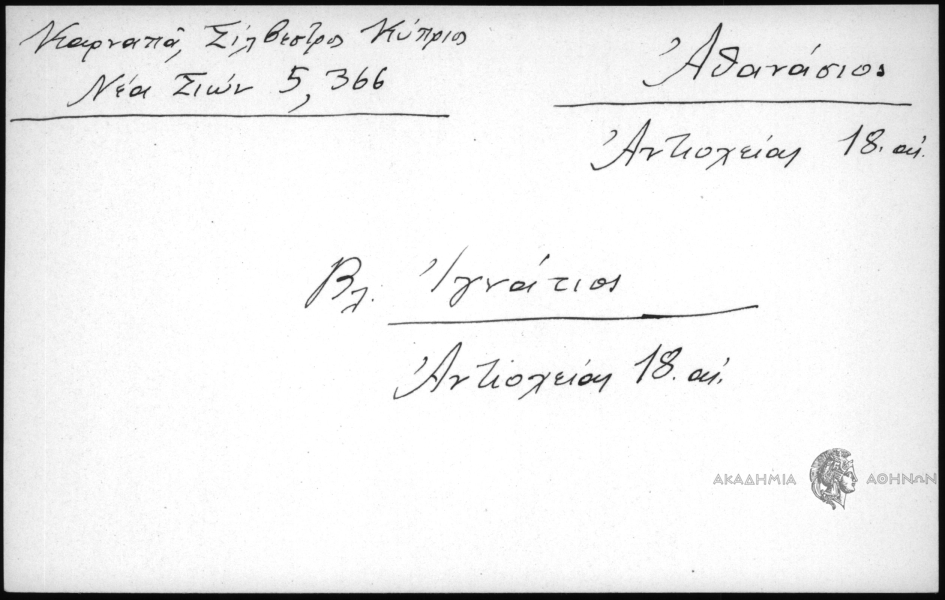 Καρναπᾶ, Σίλβεστρος Κύπριος
Νέα Σιών 5, 366
Ἀθανάσιος
Ἀντιοχείας 18. αἰ.
Βλ. Ἰγνάτιος
Ἀντιοχείας 18. αἰ.
ΑΚΑΔΗΜΙΑ ΑΘΗΝΩΝ